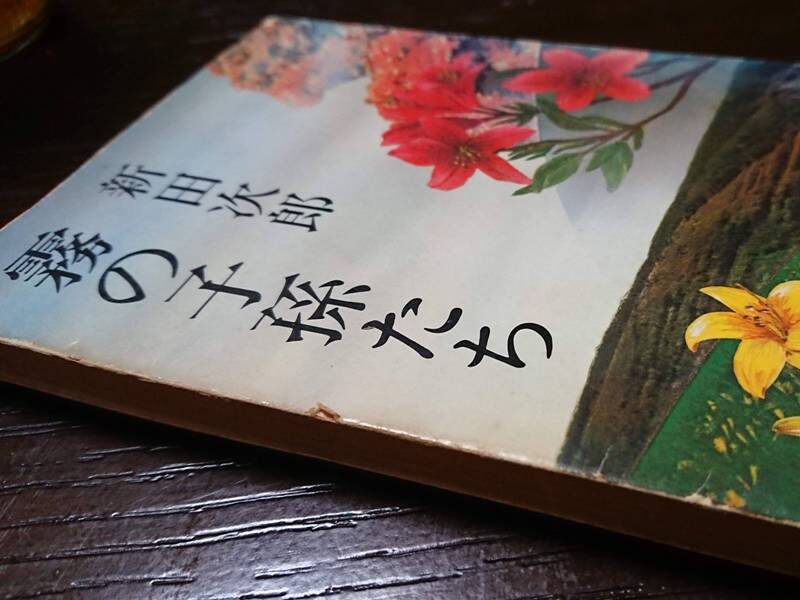 新田次郎
霧の子孫たち